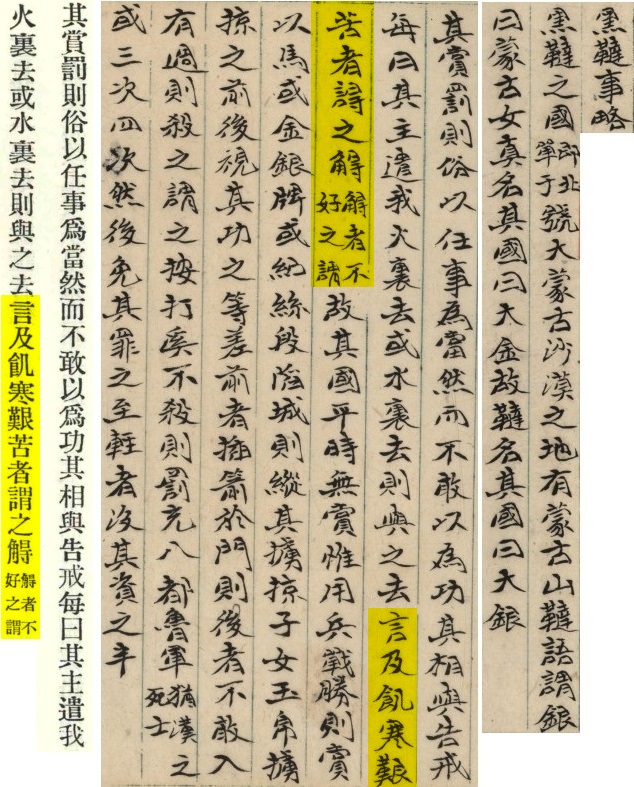 黑韃事略
黑韃之國即北單于號大蒙古沙漠之地有蒙古山韃語謂銀
曰蒙古女真名其國曰大金故韃名其國曰大銀
其賞罰則俗以任事為當然而不敢以為功其相與告戒
每曰其主遣我火裏去或水裏去則與之去言及飢寒艱
苦者謂之䚟䚟者不好之謂故其國平時無賞惟用兵戰勝則賞
以馬或金銀牌或紵絲段陷城則縱其擄掠子女玉帛擄
掠之前後視其功之等差前者插箭於門則後者不敢入
有過則殺之謂之按打奚不殺則罰充八都魯軍猶漢之死士
或三次四次然後免其罪之至輕者沒其資之半
其賞罰則俗以任事爲當然而不敢以爲功其相與告戒每曰其主遣我
火裏去或水裏去則與之去言及飢寒艱苦者謂之䚟䚟者不好之謂